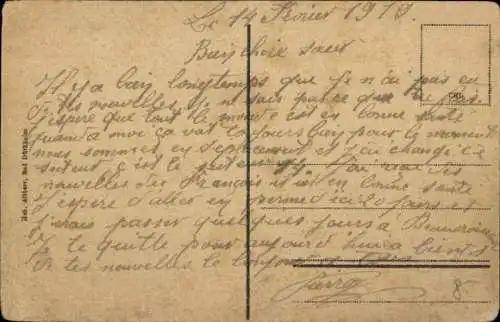 Le 14 Février 1919.
Bien chère sœur
Il y a bien longtemps que je n'ai pas eu
de tes nouvelles, je ne sais pas ce que tu fais
J'espère que tout le monde est en bonne santé
quand à moi ça va toujours bien pour le moment
nous sommes en déplacement et j'ai changé de
secteur c'est le secteur J'ai reçu des
nouvelles de François il est en bonne santé
J'espère d'aller en permed ici 20 jours et
j'irais passer quelques jours à
Je te quitte pour aujourd'hui à bientôt
de tes nouvelles
Heh. Albert, Bad Dürkheim